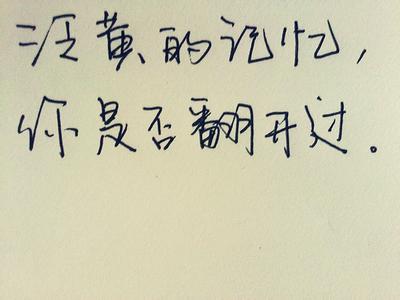 泛黄的记忆，
你是否翻开过。